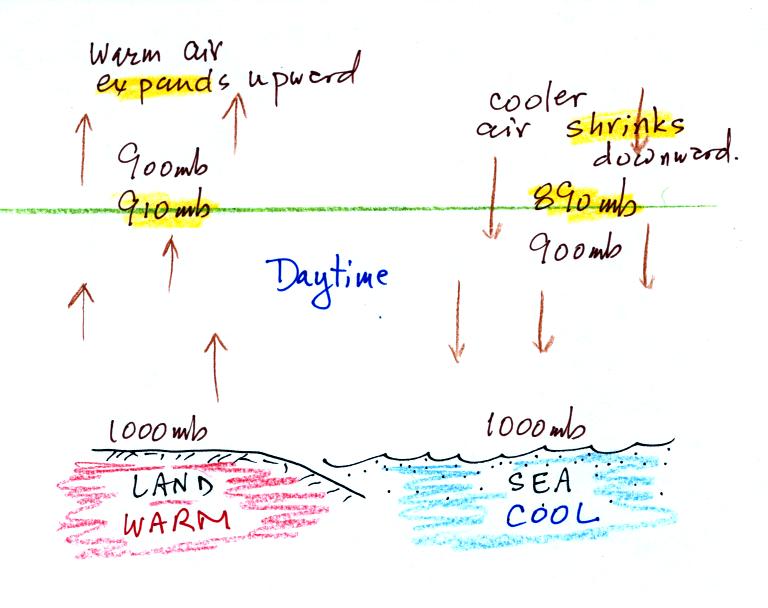 Warm air
expands upward
900mb
910mb
cooler
air shrinks
downward.
890mb
900mb
Daytime
1000mb
1000mb
LAND
WARM
SEA
COOL